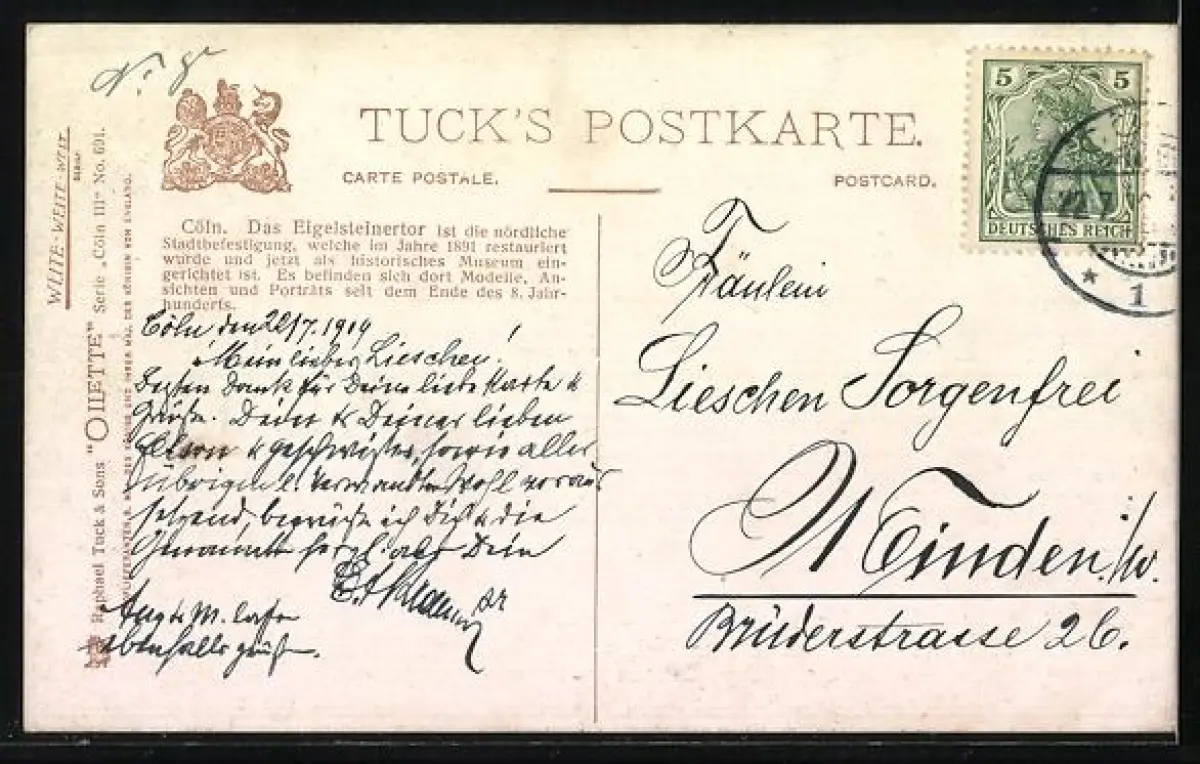 TUCK'S POSTKARTE.
CARTE POSTALE.
POSTCARD.
5 5
DEUTSCHES REICH
22.7
1
Cöln. Das Eigelsteinertor ist die nördliche
Stadtbefestigung, welche im Jahre 1891 restauriert
wurde und jetzt als historisches Museum ein-
gerichtet ist. Es befinden sich dort Modelle, An-
sichten und Porträts seit dem Ende des 8. Jahr-
hunderts.
Raphael Tuck & Sons "OILETTE" Serie „Cöln III" No. 691.
Cöln den 22/7. 1919
Mein liebes Lieschen!
Besten Dank für Deine liebe Karte &
Grüße. Dein & Deiner lieben
Eltern & Geschwister, sowie aller
übrigen l. Verwandten Wohl voraus
setzend, begrüße ich Dich & die
Genannten herzl. als Dein
Aug & M. lassen
ebenfalls grüßen.
Fräulein
Lieschen Sorgenfrei
Minden i/w.
Brüderstrasse 26.